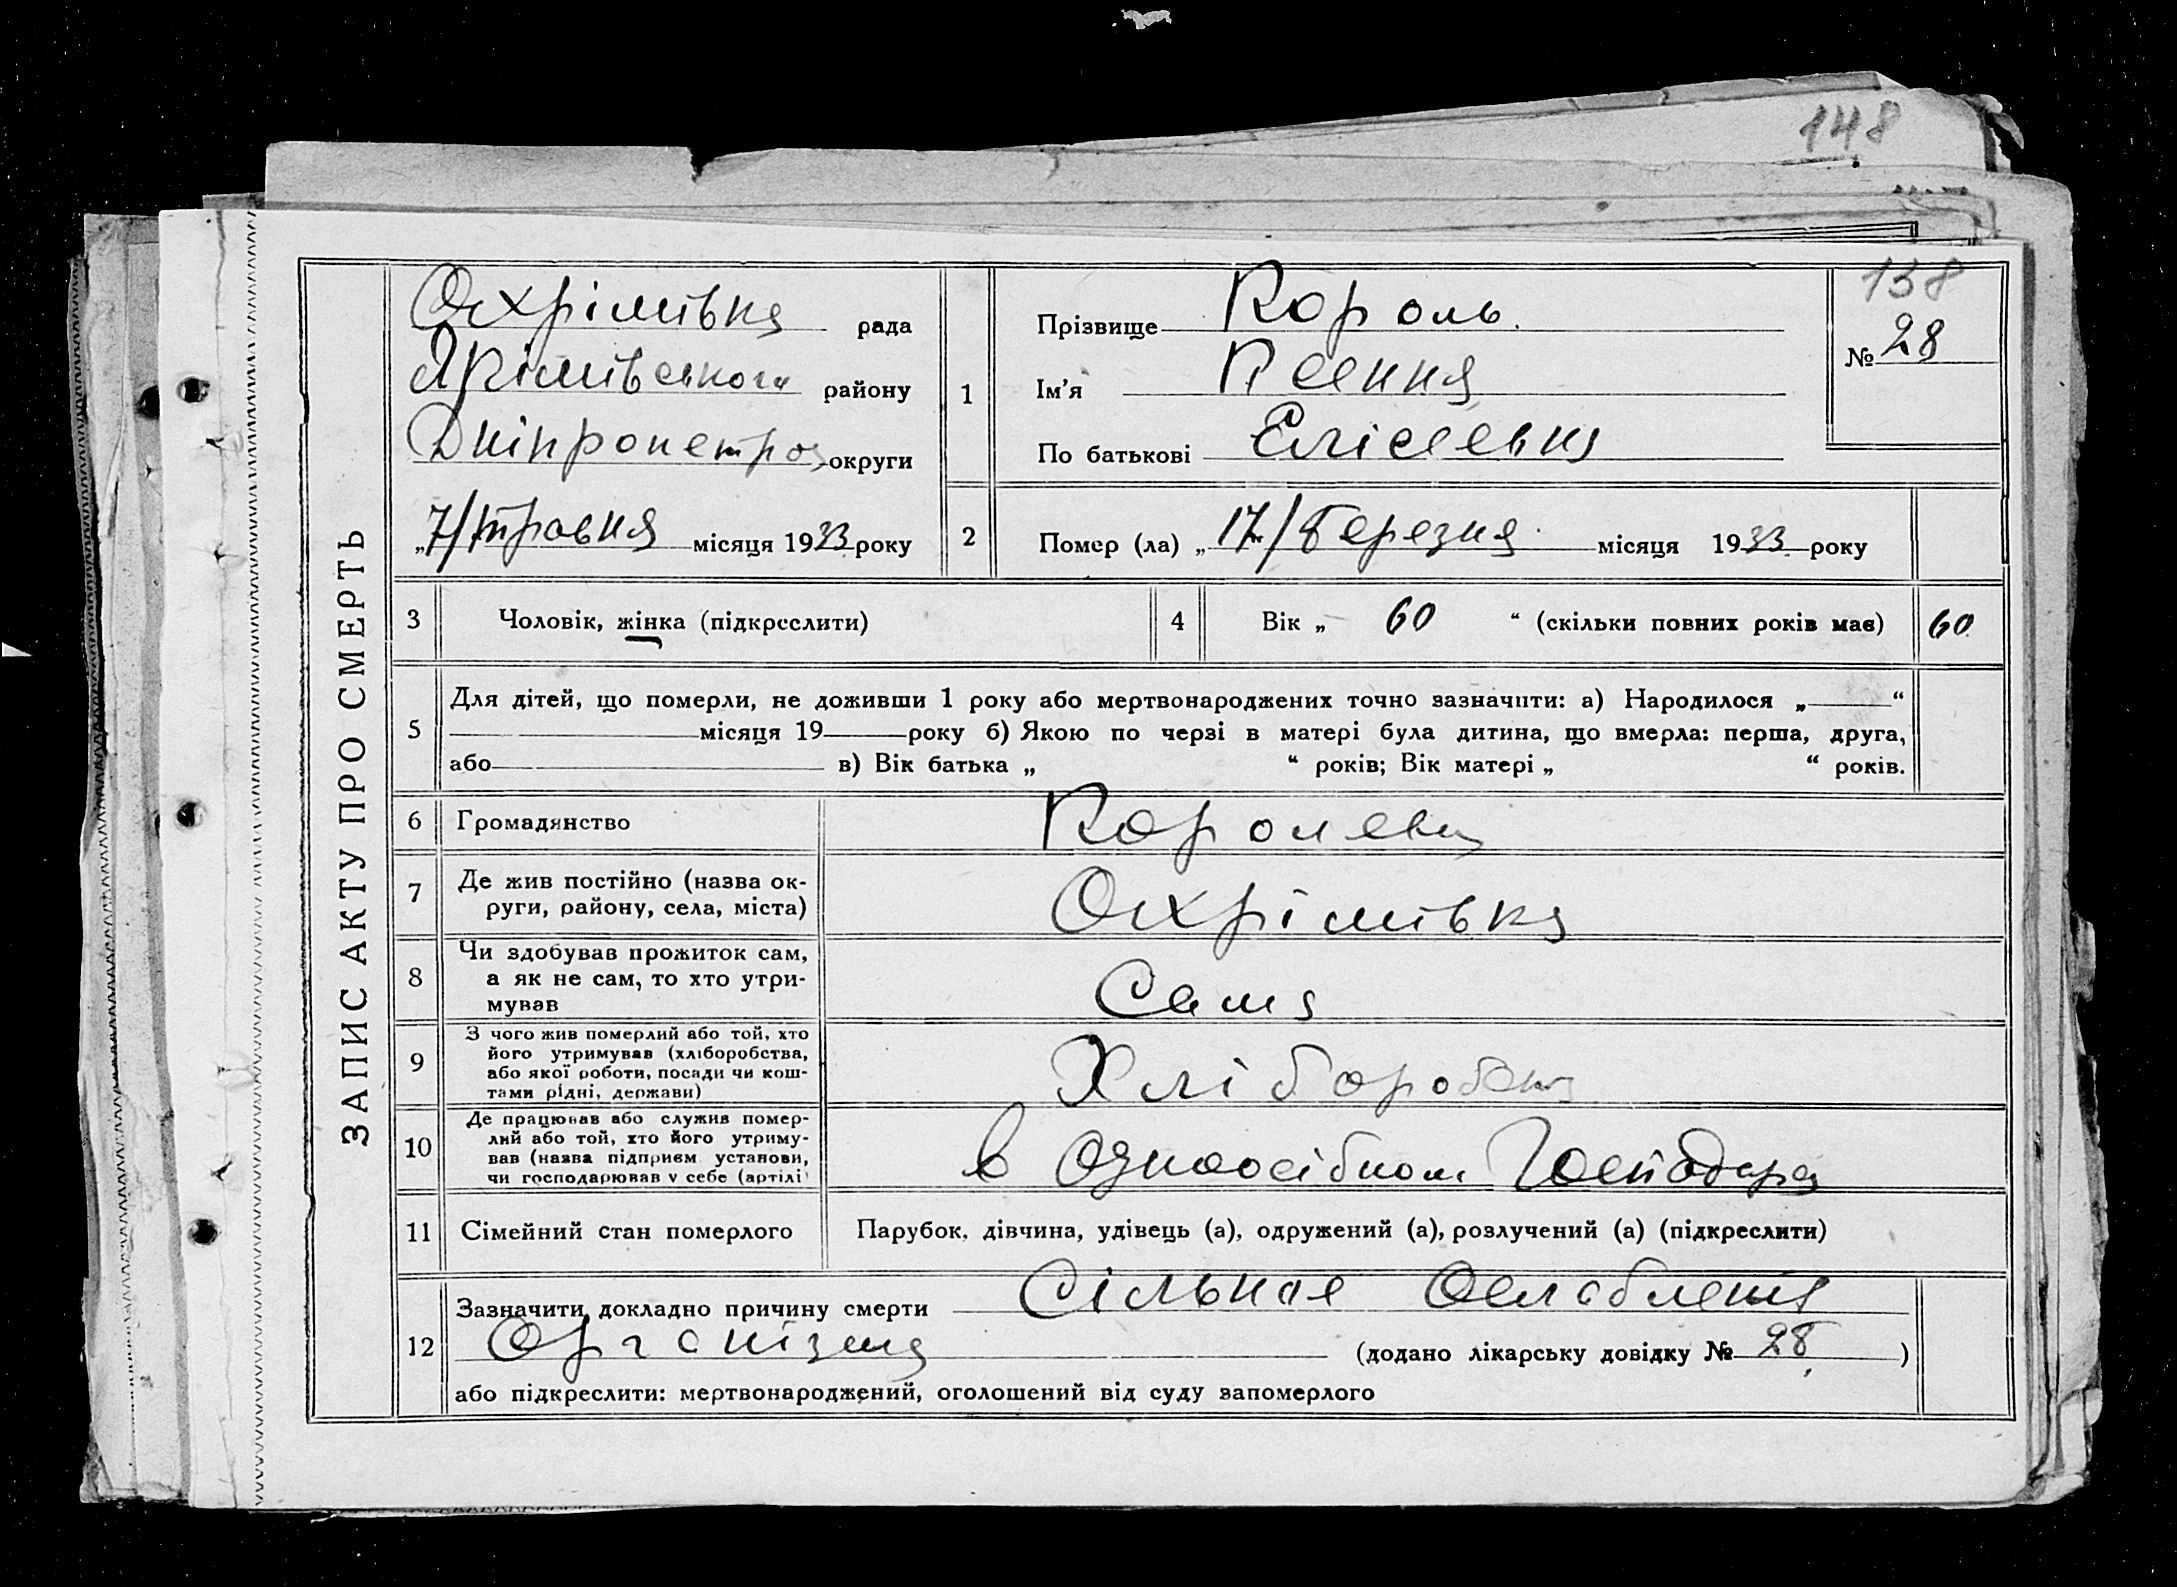 148
138
ЗАПИС АКТУ ПРО СМЕРТЬ
Охрімівка рада
Якімівського району
Дніпропетро округи
„7/травня місяця 1933 року
1
Прізвище Король
Ім'я Ксения
По батькові Елісеевна
№ 28
2 Помер (ла) „17/березня місяця 1933 року
3 Чоловік, жінка (підкреслити)
4 Вік „ 60 “ (скільки повних років має) 60
5 Для дітей, що померли, не доживши 1 року або мертвонароджених точно зазначити: а) Народилося „ “
місяця 19 року б) Якою по черзі в матері була дитина, що вмерла: перша, друга,
або в) Вік батька „ “ років; Вік матері „ “ років.
6 Громадянство
7 Де жив постійно (назва ок-
руги, району, села, міста) Охрімівка
8 Чи здобував прожиток сам,
а як не сам, то хто утри-
мував Сама
9 З чого жив померлий або той, хто
його утримував (хліборобства,
або якої роботи, посади чи кош-
тами рідні, держави) Хлібороб
10 Де працював або служив помер-
лий або той, хто його утриму-
вав (назва підприєм установи,
чи господарював у себе (артілі) в одноосібном Господара
11 Сімейний стан померлого Парубок, дівчина, удівець (а), одружений (а), розлучений (а) (підкреслити)
12 Зазначити докладно причину смерти Сільное Ослабления
Организма (додано лікарську довідку № 28 )
або підкреслити: мертвонароджений, оголошений від суду запомерлого